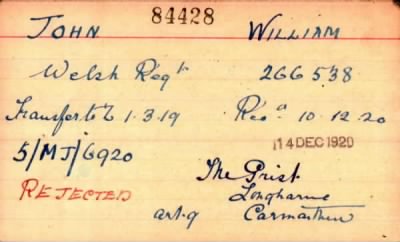 84428
JOHN WILLIAM
Welsh Regt 266538
Transfer to Z 1.3.19 Recd 10.12.20
5/MJ/6920 14 DEC 1920
REJECTED The Grist
Laugharne
art-9 Carmarthen